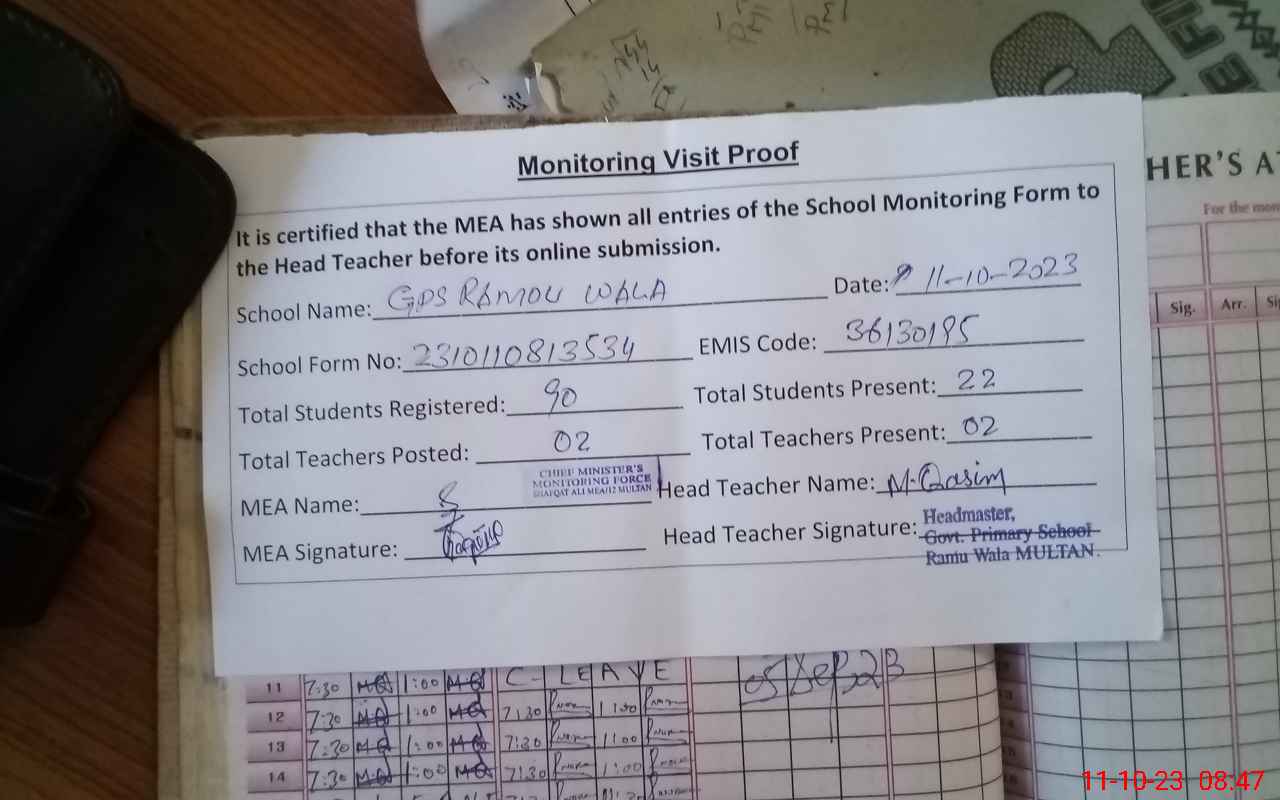 Monitoring Visit Proof
HER'S A
For the mon
It is certified that the MEA has shown all entries of the School Monitoring Form to
the Head Teacher before its online submission.
School Name: GPS RAMOU WALA Date: 11-10-2023
School Form No: 2310110813534 EMIS Code: 36130195
Sig. Arr. Si
Total Students Registered: 90 Total Students Present: 22
Total Teachers Posted: 02 Total Teachers Present: 02
CHIEF MINISTER'S
MONITORING FORCE
SHAFQAT ALI MEA/12 MULTAN
MEA Name: Head Teacher Name: M. Qasim
MEA Signature: Head Teacher Signature: Headmaster,
Govt. Primary School
Ramu Wala MULTAN.
11 7:30 MQ 1:00 MQ C- LEAVE
12 7:30 MQ 1:00 MQ 7:30 1:30
13 7:30 MQ 1:00 MQ 7:30 1:00
14 7:30 MQ 1:00 MQ 7:30 1:00
11-10-23 08:47